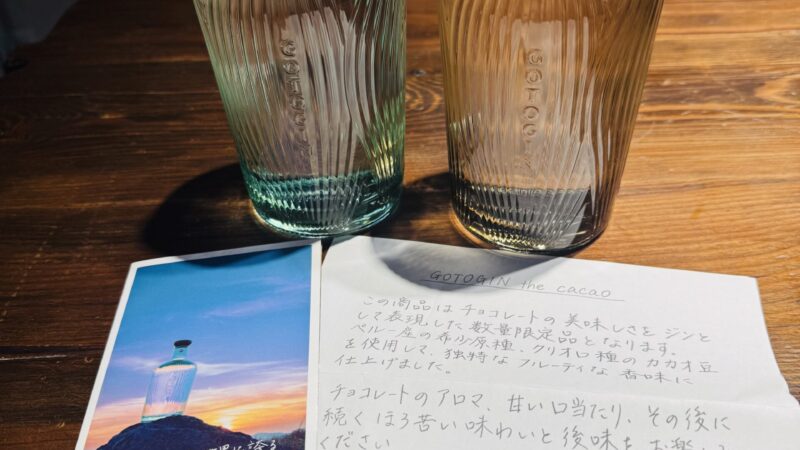 GOTOGIN
GOTOGIN
GOTOGIN the cacao
この商品はチョコレートの美味しさをジンと
して表現した数量限定品となります。
ペルー産の希少原種、クリオロ種のカカオ豆
を使用して、独特なフルーティな香味に
仕上げました。
チョコレートのアロマ、甘い口当たり、その後に
続くほろ苦い味わいと後味をお楽しみ
ください